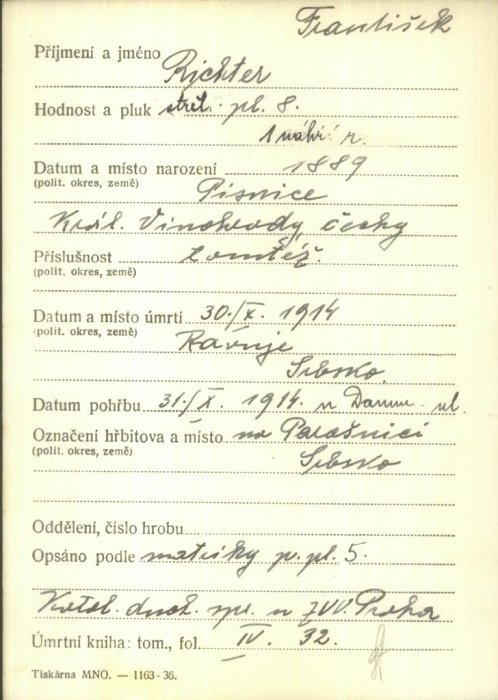 František
Příjmení a jméno Richter
Hodnost a pluk střel. pl. 8.
1 náhr. r.
Datum a místo narození 1889
(polit. okres, země) Pisnice
Král. Vinohrady, Čechy
Příslušnost tamtéž.
(polit. okres, země)
Datum a místo úmrtí 30./X. 1914
(polit. okres, země) Ravnje
Srbsko.
Datum pohřbu 31./X. 1914.
Označení hřbitova a místo na Parašnici
(polit. okres, země) Srbsko
Oddělení, číslo hrobu
Opsáno podle matriky p. pl. 5.
Katol. duch. spr. u ZVV. Praha
Úmrtní kniha: tom., fol. IV. 32.
Tiskárna MNO. — 1163-36.